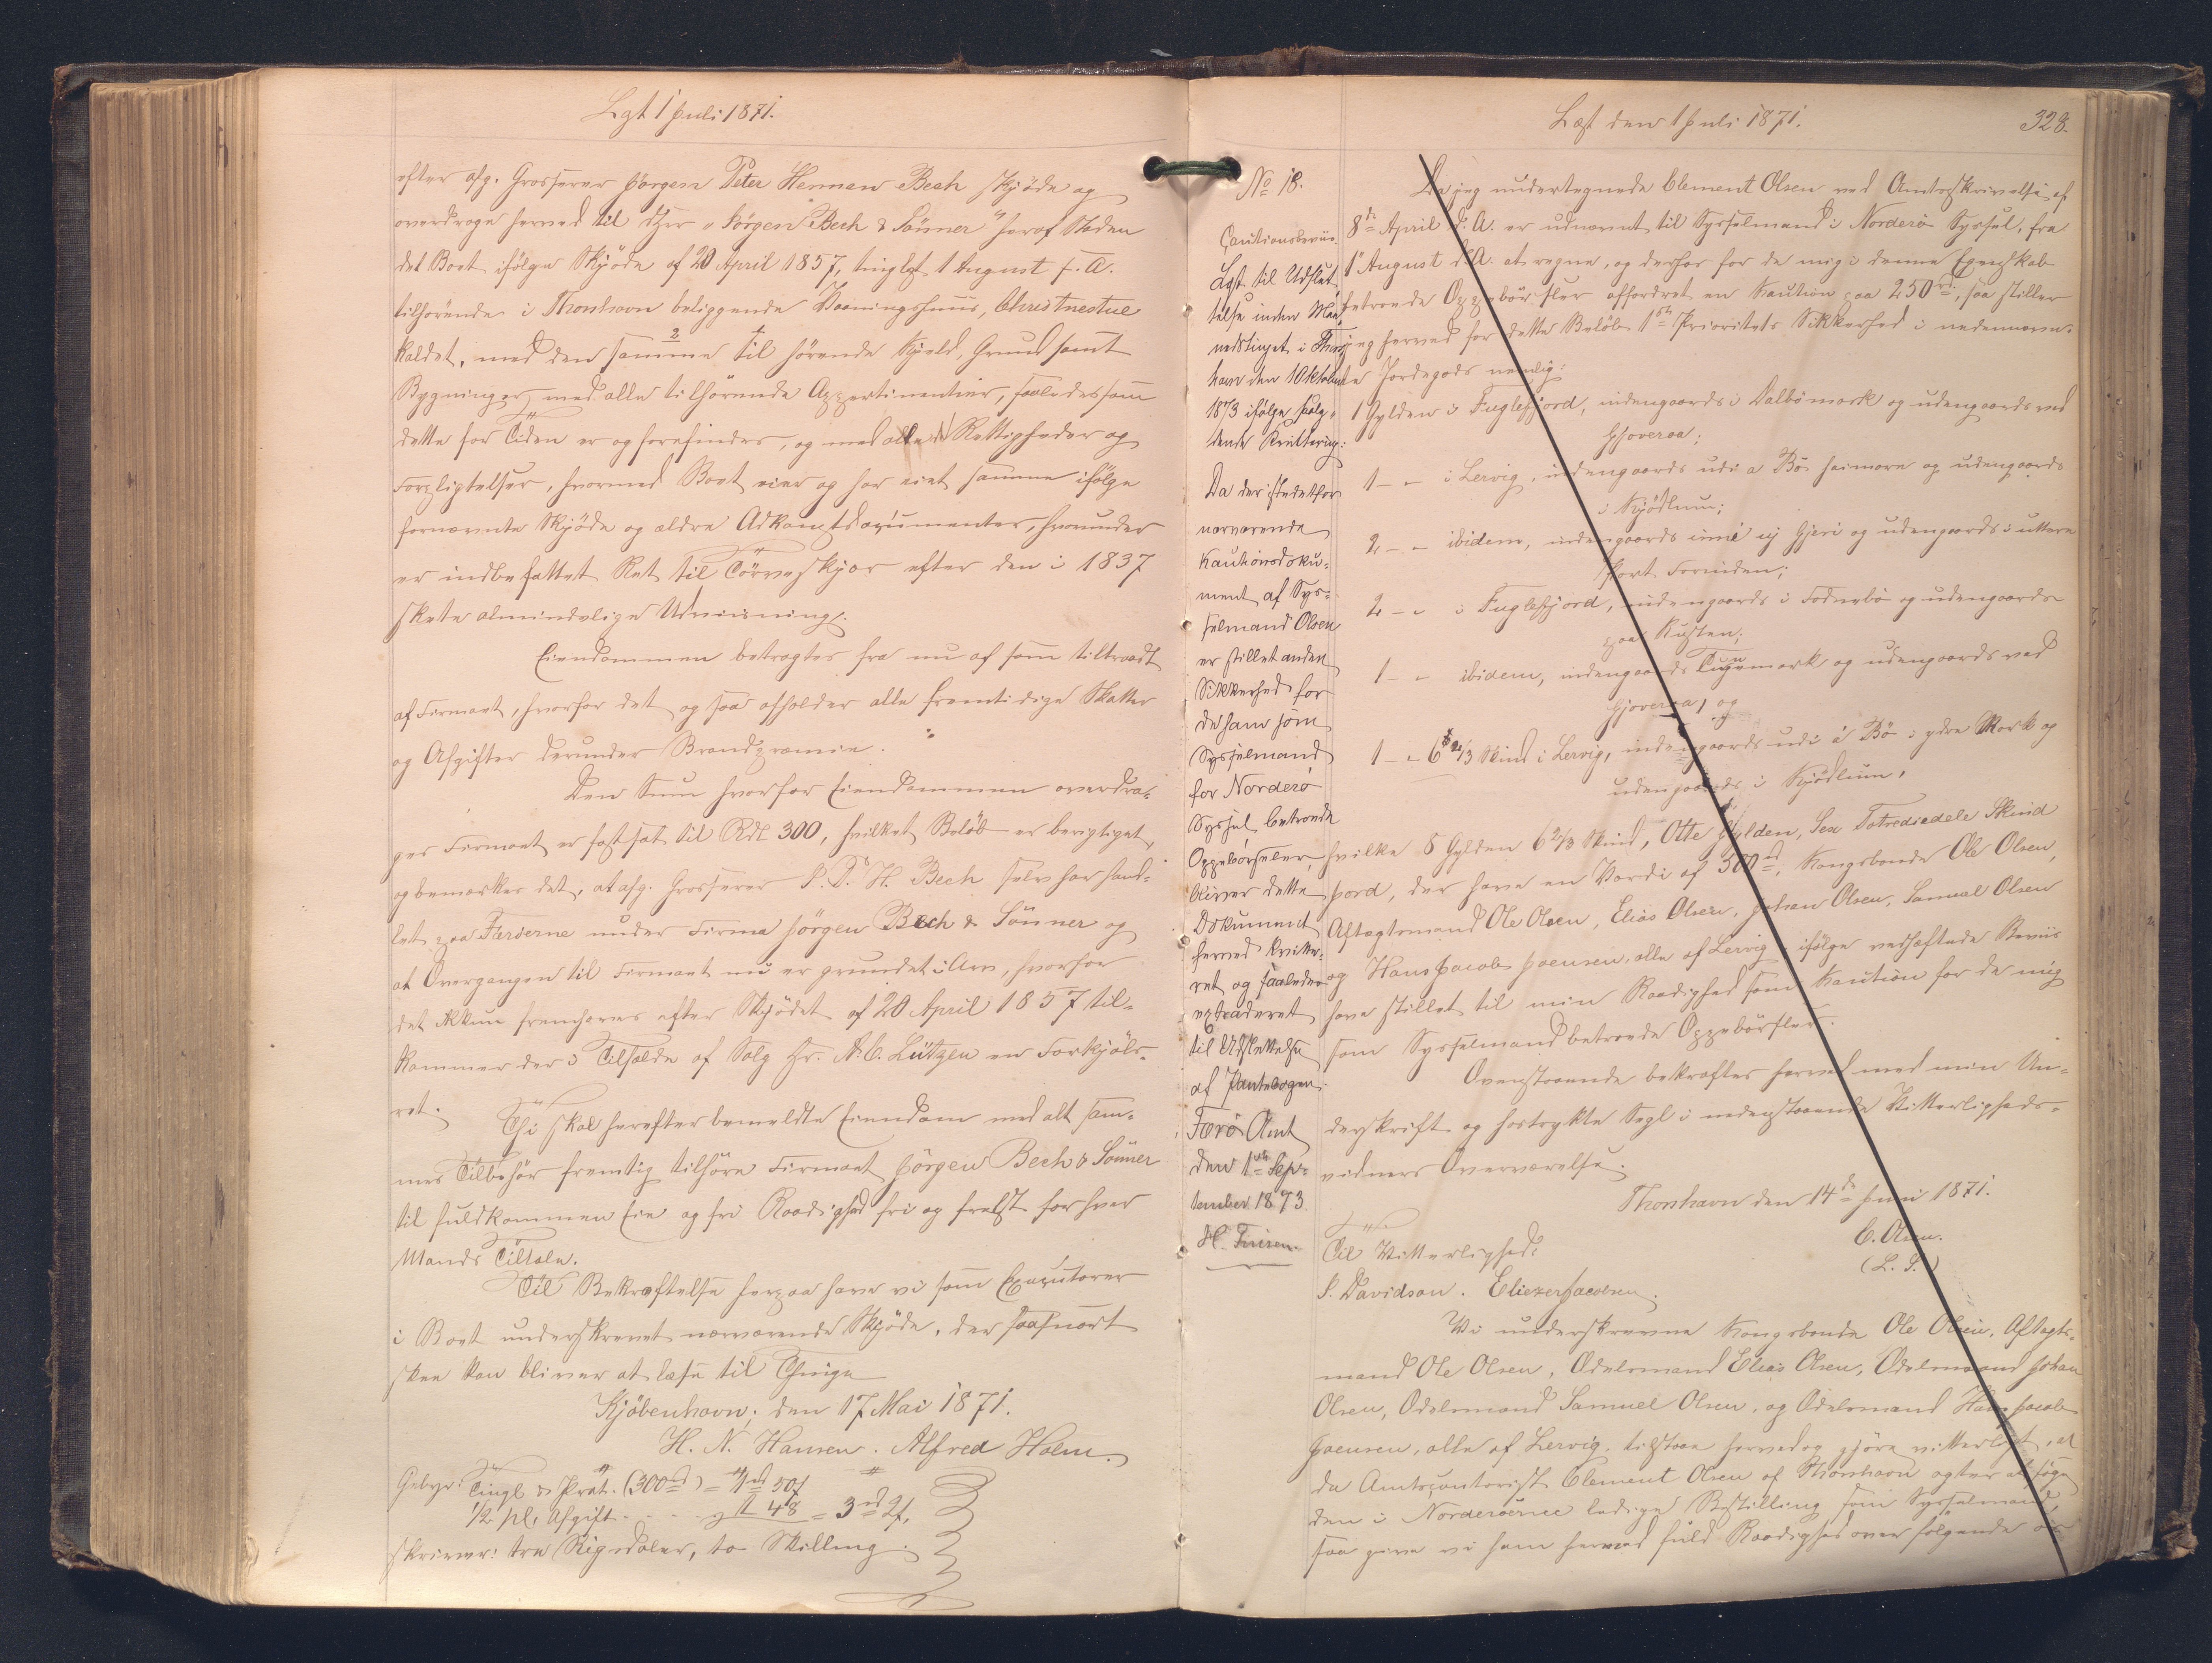 Læst 1 Juli 1871.
efter afg. Grosserer Jørgen Peter Herman Bech skjøde og
overdrage herved til Hrr "Jörgen Bech & Sönner" heraf Staden
det Boet ifölge Skjöde af 20 April 1857, tinglyst 1 August s. A.
tilhörende i Thorshavn beliggende Vaaningshuus, Christnestue
kaldet, med den samme tilhörende Kjeld, Grund samt
Bygninger, med alle tilhörende Appertinentier, saaledes som
dette for Tiden er og forefindes, og med alle Rettigheder og
Forpligtelser, hvormed Boet eier og har eiet samme ifölge
fornævnte Skjöde og ældre Adkomstdocumenter, hvorunder
er indbefattet Ret til Törveskjær efter den i 1837
skete almindelige Udviisning.
Eiendommen betragtes fra nu af som tiltraadt
af Firmaet, hvorfor det og saa afholder alle fremtidige Skatter
og Afgifter derunder Brandpræmie.
Den Sum hvorfor Eiendommen overdra-
ges Firmaet er fastsat til Rdl 300, hvilket Belöb er berigtiget,
og bemærkes det, at afg. Grosserer J. P. H. Bech selv har hand-
let paa Færøerne under Firma Jörgen Bech & Sönner og
at Overgangen til Firmaet nu er grundet i Arv, hvorfor
det ikkun fremhæves efter Skjödet af 20 April 1857 til-
kommer der i Tilfælde af Salg Hr. A. C. Lützen en Forkjöbs-
ret.
Thi skal herefter bemeldte Eiendom med alt sam-
mes Tilbehör fremtig tilhöre Firmaet Jörgen Bech & Sönner
til fuldkommen Eie og fri Raadighed fri og frelst for hver
Mands Tiltale.
Til Bekræftelse herpaa have vi som Executorer
i Boet underskrevet nærværende Skjöde, der saasnart
skee kan bliver at læse til Thinge
Kjöbenhavn, den 17 Mai 1871.
H. N. Hansen. Alfred Holm.
Gebyr: Tingl & Prot. (300 rd) = 1 rd 50 s
1/2 pCt Afgift . . . . 1 - 48 = 3 rd 2 s,
skriver: tre Rigsdaler, to Skilling.
Læst den 1 Juli 1871.
328.
No 18.
Cautionsbeviis
Læst til Udslet-
telse inden Maa-
nedstinget i Thors-
havn den 1 Oktober
1873 ifölge fölg-
dende Kvittering:
Da der istedetfor
nærværende
Kautionsdoku-
ment af Sys-
selmand Olsen
er stillet anden
Sikkerhed for
de ham som
Sysselmand
for Norderö
Syssel betroede
Oppebörseler,
bliver dette
Dokument
herved kvitte-
ret og saaledes
extraderet
til Udslettelse
af Pantebogen.
Færö Amt
den 1ste Sep-
tember 1873.
H. Finsen.
Da jeg undertegnede Clement Olsen ved Amtsskrivelse af
8de April d. A. er udnævnt til Sysselmand i Norderö Syssel, fra
1 August d. A. at regne, og derfor for de mig i denne Egenskab
betroede Oppebörsler affordret en Kaution paa 250 rd., saa stiller
jeg herved for dette Belöb 1ste Prioritets Sikkerhed i nedennævn-
te Jordegods nemlig:
1 Gylden i Fuglefjord, indengaards i Dalbömark og udengaards ved
Gjoveraa;
1 - - i Lervig, indengaards udi a Bö heimare og udengaards
i Kjödlum;
2 - - ibidem, indengaards inni uj Gjeri og udengaards i uttara
Part Forinden;
2 - - i Fuglefjord, indengaards i Fodnebö og udengaards
paa Kusten;
1 - - ibidem, indengaards Tugumark og udengaards ved
Gjoveraa, og
1 - - 6 2/3 Skind i Lervig, indengaards udi á Bö i ydre Mark og
udengaards i Kjödlum,
hvilke 8 Gylden 6 2/3 Skind, Otte Gylden, Sex Totrediedele Skind
Jord, der have en Værdi af 500 rd, Kongsbonde Ole Olsen,
Aftægtsmand Ole Olsen, Elias Olsen, Johan Olsen, Samuel Olsen
og Hans Jacob Joensen, alle af Lervig, ifölge vedhæftede Beviis
have stillet til min Raadighed som Kaution for de mig
som Sysselmand betroede Oppebörsler.
Ovenstaaende bekræftes herved med min Un-
derskrift og hostrykte Segl i nedenstaaende Vitterligheds-
vidners Overværelse.
Thorshavn den 14de Juni 1871.
C. Olsen.
(L. S.)
Til Vitterlighed:
P. Davidson. Eliezer Jacobsen.
Vi underskrevne Kongsbonde Ole Olsen, Aftægts-
mand Ole Olsen, Odelsmand Elias Olsen, Odelsmand Johan
Olsen, Odelsmand Samuel Olsen, og Odelsmand Hans Jacob
Joensen, alle af Lervig, tilstaae herved og gjöre vitterligt, at
da Amtscontorist Clement Olsen af Thorshavn agter at söge
den i Norderöerne ledige Bestilling som Sysselmand,
saa give vi ham herved fuld Raadighed over fölgende os